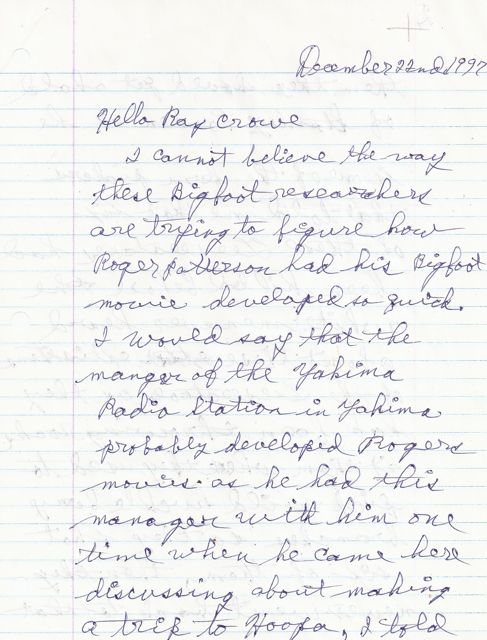 December 22nd, 1997
Hello Ray Crowe
I cannot believe the way
these Bigfoot researchers
are trying to figure how
Roger patterson had his Bigfoot
movie developed so quick.
I would say that the
manger of the Yakima
Radio Station in Yakima
probably developed Rogers
movies as he had this
manager with him one
time when he came here
discussing about making
a trip to Hoopa, I told